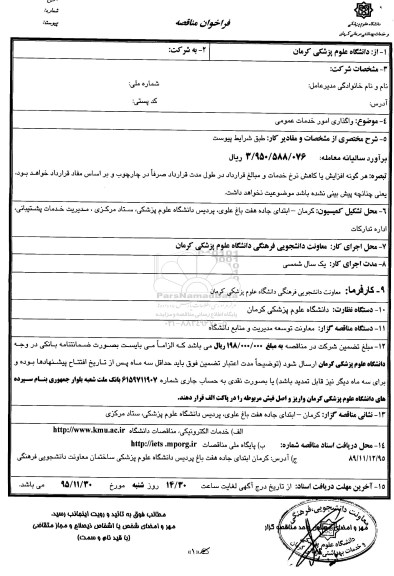 شماره:
پیوست:
دانشگاه علوم پزشکی
و خدمات بهداشتی درمانی کرمان
فراخوان مناقصه
۱- از: دانشگاه علوم پزشکی کرمان
۲- به شرکت:
۳- مشخصات شرکت:
نام و نام خانوادگی مدیرعامل:
شماره ملی:
آدرس:
کد پستی:
۴- موضوع: واگذاری امور خدمات عمومی
۵- شرح مختصری از مشخصات و مقادیر کار: طبق شرایط پیوست
برآورد سالیانه معامله: ۳/۹۵۰/۵۸۸/۰۷۶ ریال
تبصره: هر گونه افزایش یا کاهش نرخ خدمات و مبالغ قرارداد در طول مدت قرارداد صرفاً در چارچوب و بر اساس مفاد قرارداد خواهد بود.
یعنی چنانچه پیش بینی نشده باشد موضوعیت نخواهد داشت.
۶- محل تشکیل کمیسیون: کرمان – ابتدای جاده هفت باغ علوی، پردیس دانشگاه علوم پزشکی، ستاد مرکزی ، مدیریت خدمات پشتیبانی،
اداره تدارکات
۷- محل اجرای کار: معاونت دانشجویی فرهنگی دانشگاه علوم پزشکی کرمان
۸- مدت اجرای کار: یک سال شمسی
۹- کارفرما: معاونت دانشجویی فرهنگی دانشگاه علوم پزشکی کرمان
۱۰- دستگاه نظارت: دانشگاه علوم پزشکی کرمان
۱۱- دستگاه مناقصه گزار: معاونت توسعه مدیریت و منابع دانشگاه
۱۲- مبلغ تضمین شرکت در مناقصه به مبلغ ۱۹۸/۰۰۰/۰۰۰ ریال می باشد که الزاماً می بایست بصورت ضمانتنامه بانکی در وجه
دانشگاه علوم پزشکی کرمان ارسال شود (توضیحاً مدت اعتبار تضمین فوق باید حداقل سه ماه پس از تاریخ افتتاح پیشنهادها بوده و
برای سه ماه دیگر نیز قابل تمدید باشد) یا بصورت نقدی به حساب جاری شماره ۶۱۵۹۷۱۱۹۰۷ بانک ملت شعبه بلوار جمهوری بنام سپرده
های دانشگاه علوم پزشکی کرمان واریز و اصل فیش مربوطه را در پاکت الف قرار دهند.
۱۳- نشانی مناقصه گزار: کرمان – ابتدای جاده هفت باغ علوی، پردیس دانشگاه علوم پزشکی، ستاد مرکزی
۱۴- محل دریافت اسناد مناقصه شماره:
۸۹/۱۱/۱۲/۹۵
الف) خدمات الکترونیکی، مناقصات دانشگاه http://www.kmu.ac.ir
ب) پایگاه ملی مناقصات http://iets.mporg.ir
ج) آدرس: کرمان ابتدای جاده هفت باغ پردیس دانشگاه علوم پزشکی ساختمان معاونت دانشجویی فرهنگی
۱۵- آخرین مهلت دریافت اسناد: از تاریخ درج آگهی لغایت ساعت ۱۴/۳۰ روز شنبه مورخ ۹۵/۱۱/۳۰ می باشد.
مطالب فوق به تائید و رویت اینجانب رسید.
مهر و امضای شخص یا اشخاص ذیصلاح و مجاز متقاضی
(با قید نام و سمت)
معاونت دانشجویی، فرهنگی
مهر و امضای
مناقصه گزار